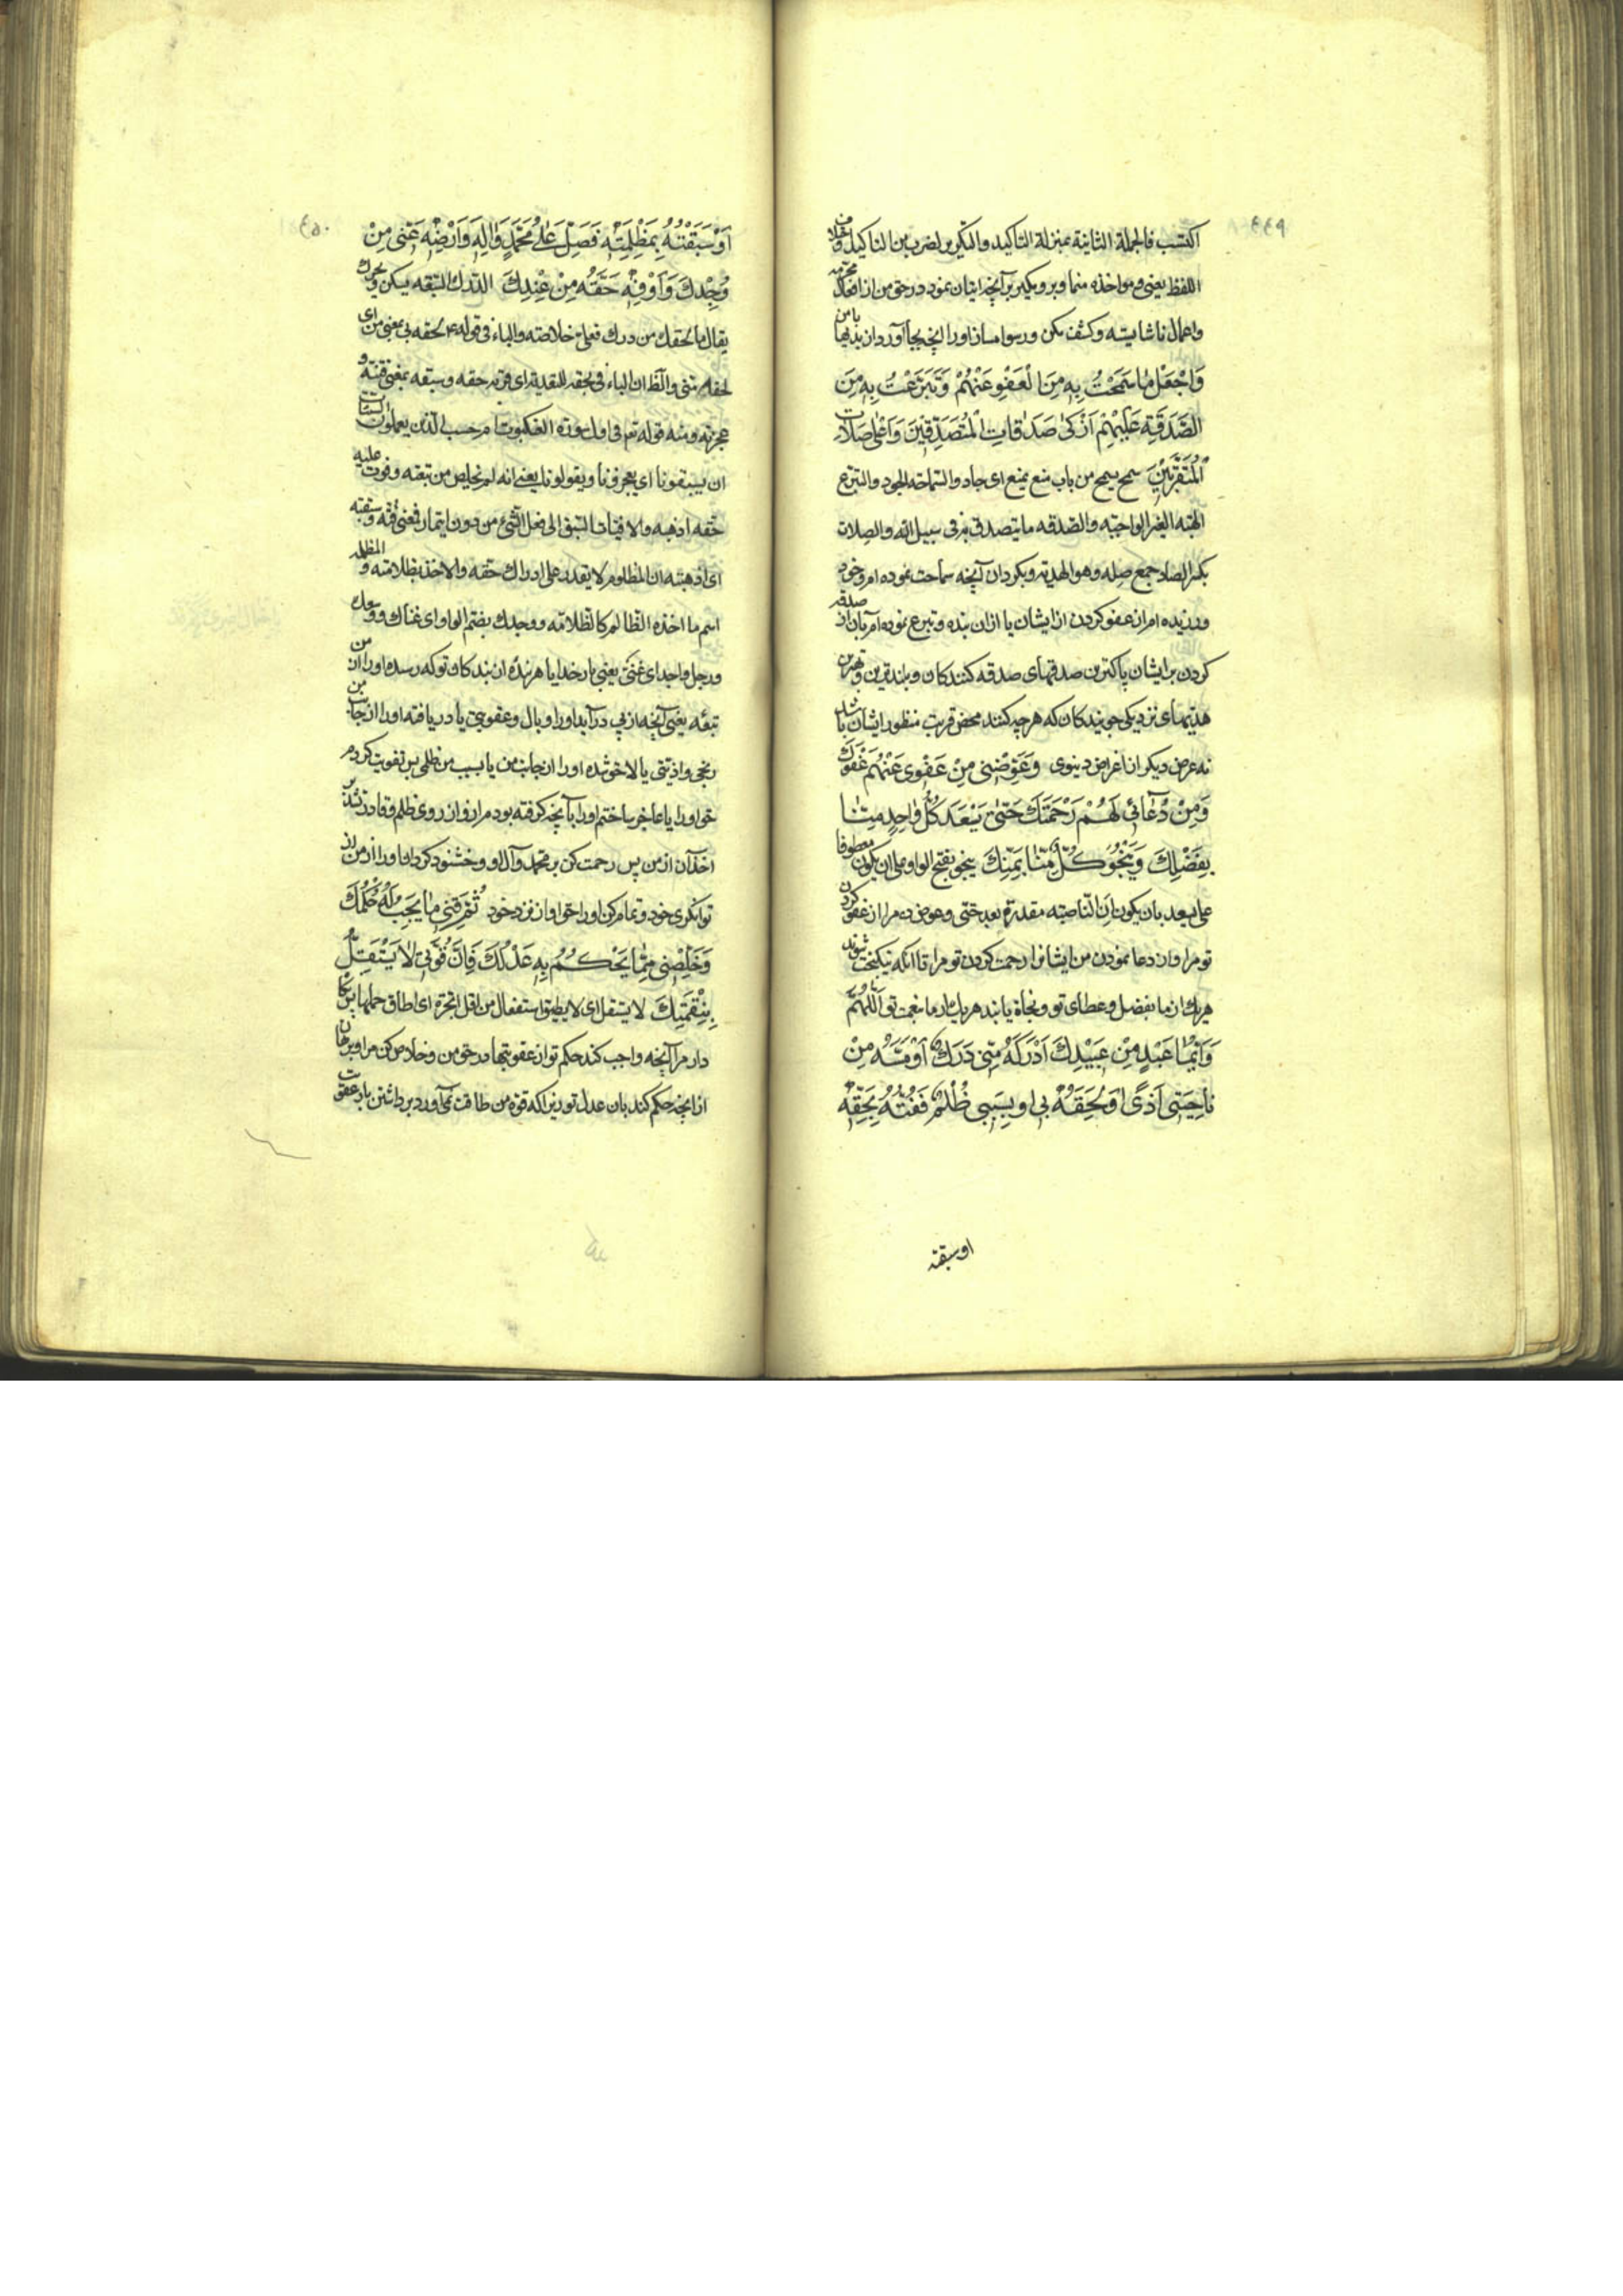 ٤٤٩
اکتسب فالجملة الثانیة بمنزلة التاکید والتکریر لضرب من التاکید
اللفظ یعنی و مؤاخذه منما و برو مکیر بر آنچه اتیان نمود در حق من از افعال محرمه
واعمال ناشایسته وکشف مکن ورسوا مساز او را آنچه بجا آورد از بدیها با من
وَاجْعَلْ مٰا سَمَحْتُ بِهِ مِنَ الْعَفْوِ عَنْهُمْ وَتَبَرَّعْتُ بِهِ مِنَ
الصَّدَقَةِ عَلَیْهِمْ اَزْکیٰ صَدَقٰاتِ الْمُتَصَدِّقِینَ وَاَعْلیٰ صِلاٰتِ
الْمُتَقَرِّبِیْنَ سمح یسمح من باب منع یمنع ای جاد والسّماحة الجود والتبرّع
الهبه الغیر الواجبه والصّدقه ما یتصدق به فی سبیل اللّه والصلات
بکسر الصاد جمع صله وهو الهدیه وبکردان آنچه سماحت نموده ام وجود
ورزیده ام از عفو کردن از ایشان یا ازان بنده وتبرع نموده ام بآن از صدقه
کردن بر ایشان پاکترین صدقهای صدقه کنندکان وبلندترین وبهترین
هدیّهای نزدیکی جویندکان که هرچه کنند محض قربت منظور ایشان باشد
نه غرض دیکر از اغراض دینوی وَعَوِّضْنِی مِنْ عَفْوِی عَنْهُمْ عَفْوَكَ
وَمِنْ دُعٰائِی لَهُمْ رَحْمَتَكَ حَتّٰی یَسْعَدَ کُلُّ وٰاحِدٍ مِنّٰا
بِفَضْلِكَ وَیَنْجُوَ کُلٌّ مِنّٰا بِمَنِّكَ ینجو بفتح الواو علی ان یکون معطوفا
علی یسعد بان یکون ان النّاصبه مقدرة بعد حتّی وعوض ده مرا از عفو کردن
تو مرا واز دعا نمودن من ایشانرا رحمت کردن تو مرا تا آنکه نیکبخت شوند
هر یك از ما بفضل وعطای تو ونجاة یابند هر یك از ما بنعمت تو اَللّٰهُمَّ
وَاَیُّمٰا عَبْدٍ مِنْ عَبِیْدِكَ اَدْرَکَهُ مِنِّی دَرَكٌ اَوْ مَسَّهُ مِنْ
نٰاحِیَتِی اَذًی اَوْ لَحِقَهُ بِی اَو بِسَبَبِی ظُلْمٌ فَفُتُّهُ بِحَقِّهِ
او سبقته
٤٥٠
اَوْ سَبَقْتُهُ بِمَظْلِمَتِهِ فَصَلِّ عَلٰی مُحَمَّدٍ وَاٰلِهِ وَاَرْضِهِ عَنِّی مِنْ
وُجْدِكَ وَاَوْفِهِ حَقَّهُ مِنْ عِنْدِكَ الدّرك التبعه یسکن ویحرك
یقال ما لحقك من درك فعلیّ خلاصه والباء فی قوله ع لحقه بی بمعنی من ای
لحقه منّی والظ ان الباء فی بحقه للتعدیة ای فوّته حقه وسبقه بمعنی فتنه و
عجزته ومنه قوله تع فی اول سورة العنکبوت ام حسب الذین یعملون السّیّئات
ان یسبقونا ای یعجزونا ویفوتونا یعنی انه لم یخلص من تبعته وفوت علیه
حقه اذهبه والافتیات السّبق الی فعل الشّئ من دون ایتمار فمعنی فتّه وسبقته
ای اذهبته ان المظلوم لا یقدر علی ادراك حقه والاخذ بظلامته والمظلمه
اسم ما اخذه الظّالم کالظّلامه ووجدك بضم الواو ای غناك
ورجل واجد ای غنیّ یعنی بار خدایا هر بنده از بندکان تو که رسد او را از من
تبعه یعنی آنچه از پی درآید او را وبال وعقوبتی یا دریافته او را از جانب من
رنجی واذیّتی یا لاحق شده او را از جانب من یا بسبب من ظلمی پس تفویت کردم
حق او را یا عاجز ساختم او را بآنچه کرفته بودم از او از روی ظلم وقادر نشد بر
اخذ آن از من پس رحمت کن بر محمّد وآل او وخشنود کردان او را از من از
توانکری خود وتمام کن او را حق او از نزد خود ثُمَّ قِنِی مٰا یُوجِبُ لَهُ حُکْمُكَ
وَخَلِّصْنِی مِمّٰا یَحْکُمُ بِهِ عَدْلُكَ فَاِنَّ قُوَّتِی لاٰ یَسْتَقِلُّ
بِنِقْمَتِكَ لا یستقل ای لا یطیق استفعال من اقل الجرّة ای اطاق حملها پس نکاه
دار مرا آنچه واجب کند حکم تو از عقوبتها در حق من وخلاص کن مرا وبرهان
از آنچه حکم کند بآن عدل تو زیرا که قوة من طاقت نمی آورد برداشتن بار عقوبت